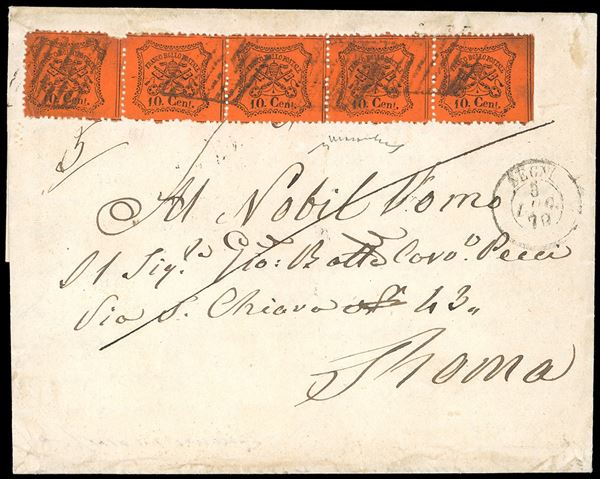 FRANCO BOLLO POSTALE FRANCO BOLLO POSTALE FRANCO BOLLO POSTALE FRANCO BOLLO POSTALE FRANCO BOLLO POSTALE
10 Cent. 10 Cent. 10 Cent. 10 Cent. 10 Cent.
5
SEGNI
5
70
Al Nobil Uomo
Il Sig.re Gio: Batta Cav.o Pecci
Via S. Chiara 43
Rhoma